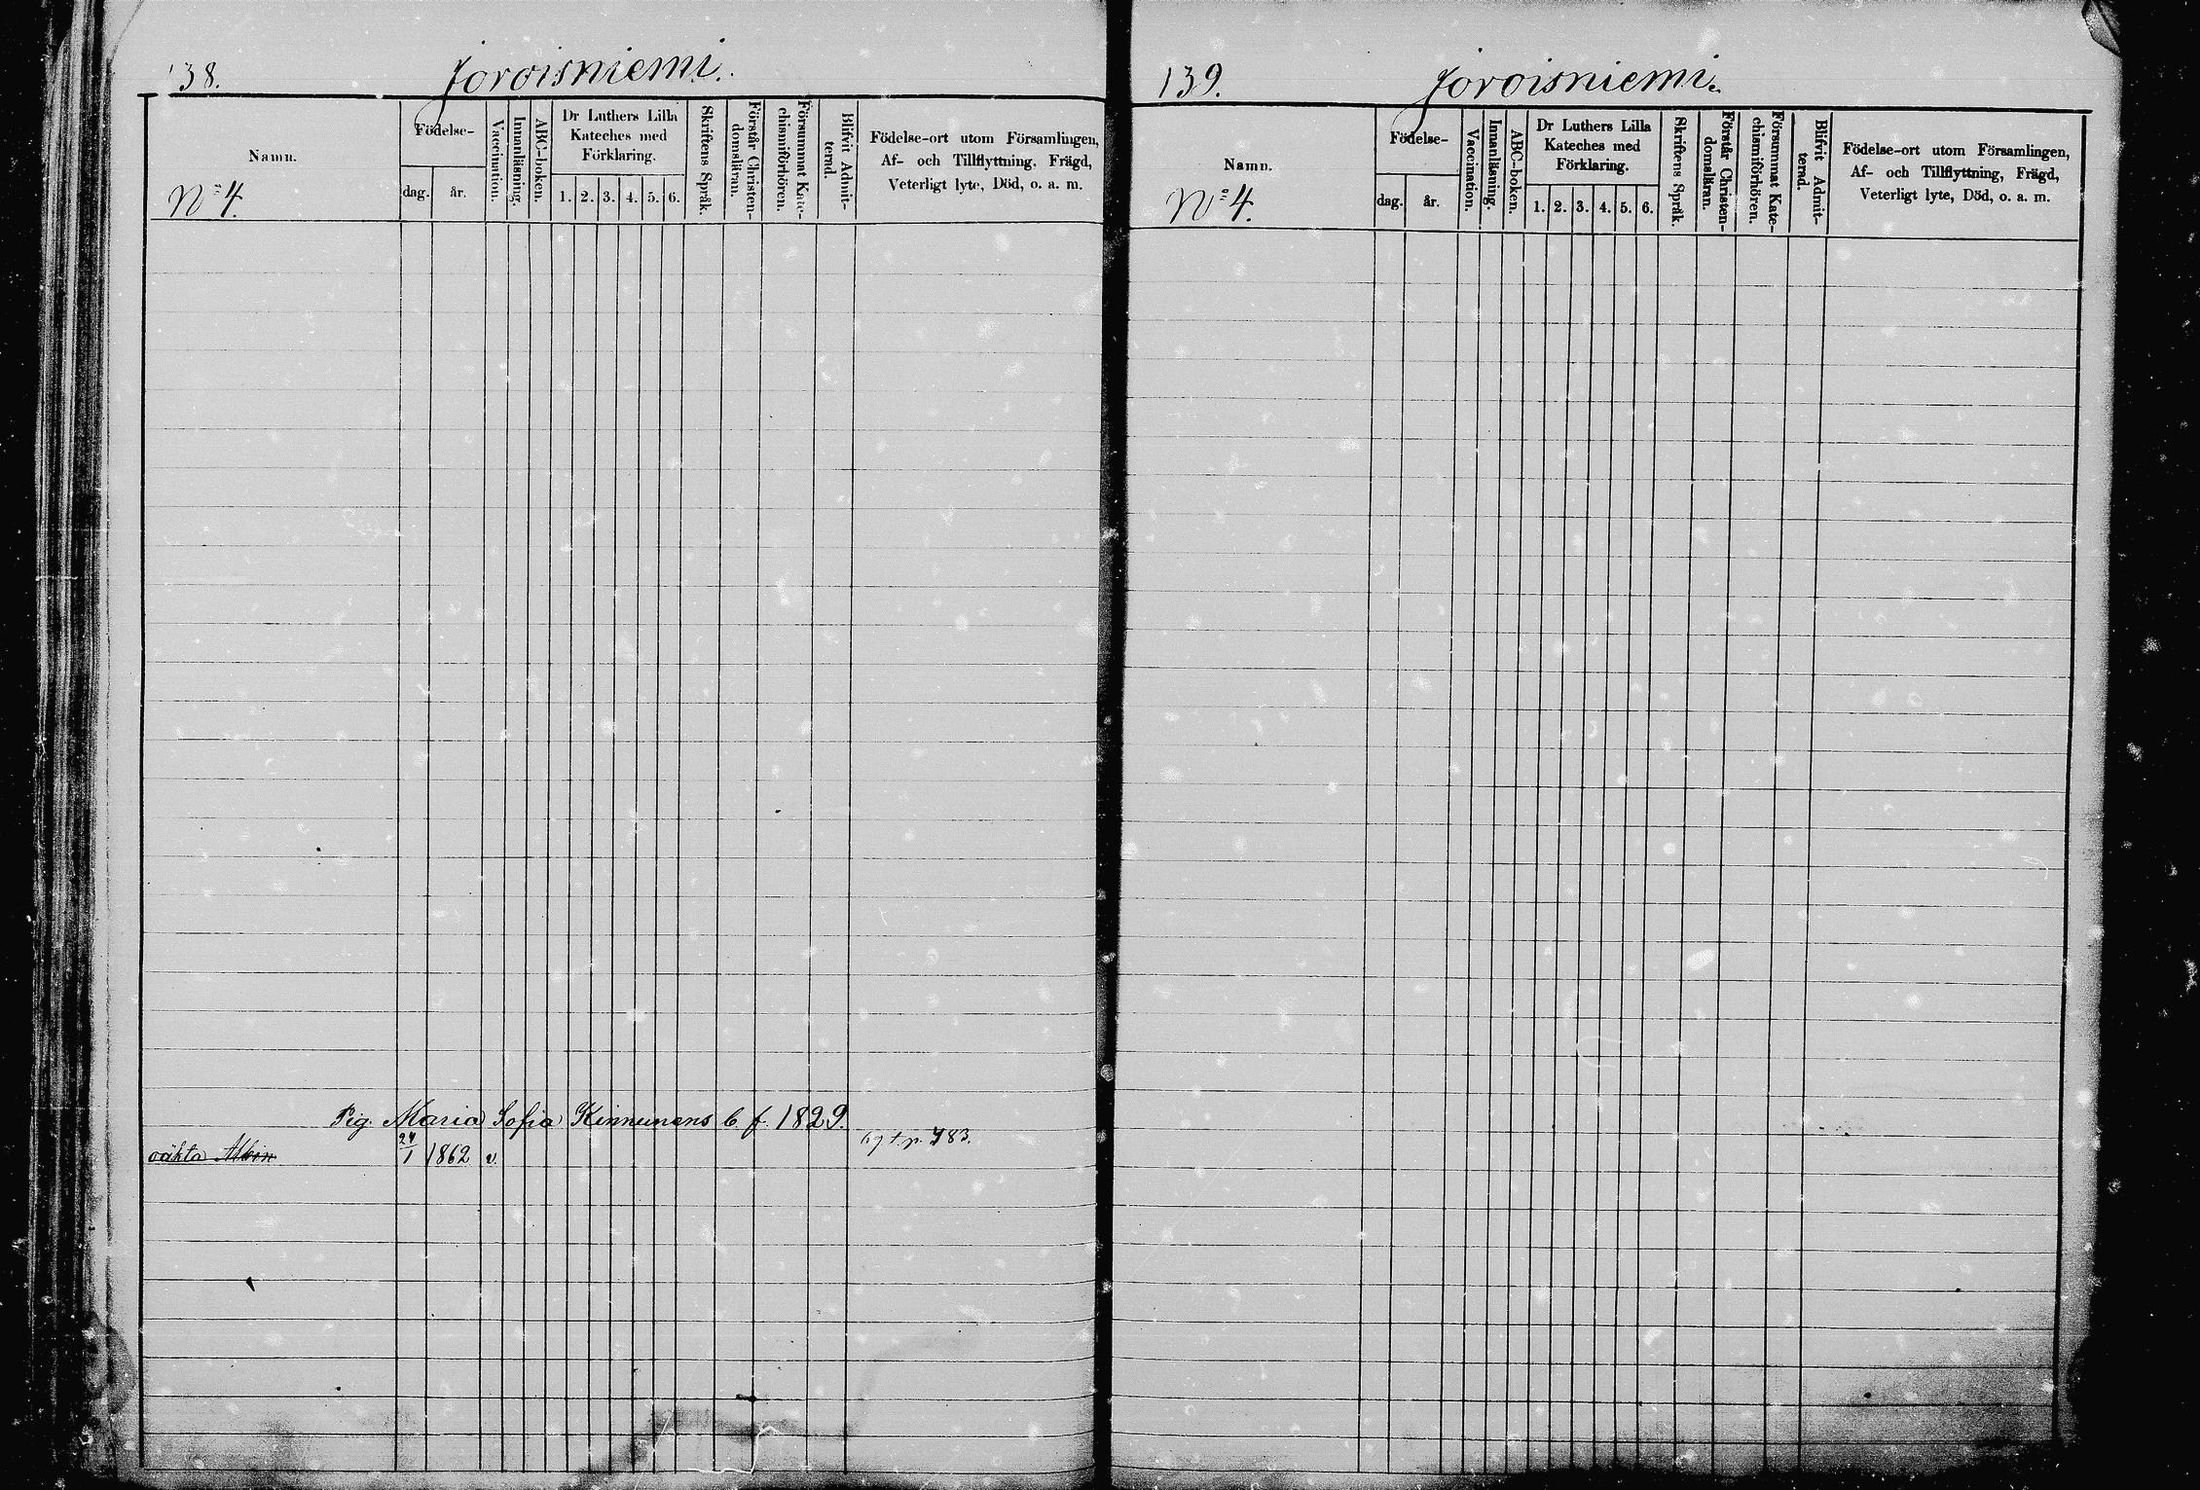 138.
Joroisniemi.
Namn.
Nº 4.
Födelse-
dag.
år.
Vaccination.
Innanläsning.
ABC-boken.
Dr Luthers Lilla
Kateches med
Förklaring.
1. 2. 3. 4. 5. 6.
Skriftens Språk.
Förstår Christen-
domsläran.
Försummat Kate-
chismiförhören.
Blifvit Admit-
terad.
Födelse-ort utom Församlingen,
Af- och Tillflyttning, Frägd,
Veterligt lyte, Död, o. a. m.
Pig. Maria Sofia Kinnunens b. f. 1829.
oäkta Albin 24/1 1862 v. p. 783.
139.
Joroisniemi.
Namn.
Nº 4.
Födelse-
dag.
år.
Vaccination.
Innanläsning.
ABC-boken.
Dr Luthers Lilla
Kateches med
Förklaring.
1. 2. 3. 4. 5. 6.
Skriftens Språk.
Förstår Christen-
domsläran.
Försummat Kate-
chismiförhören.
Blifvit Admit-
terad.
Födelse-ort utom Församlingen,
Af- och Tillflyttning, Frägd,
Veterligt lyte, Död, o. a. m.